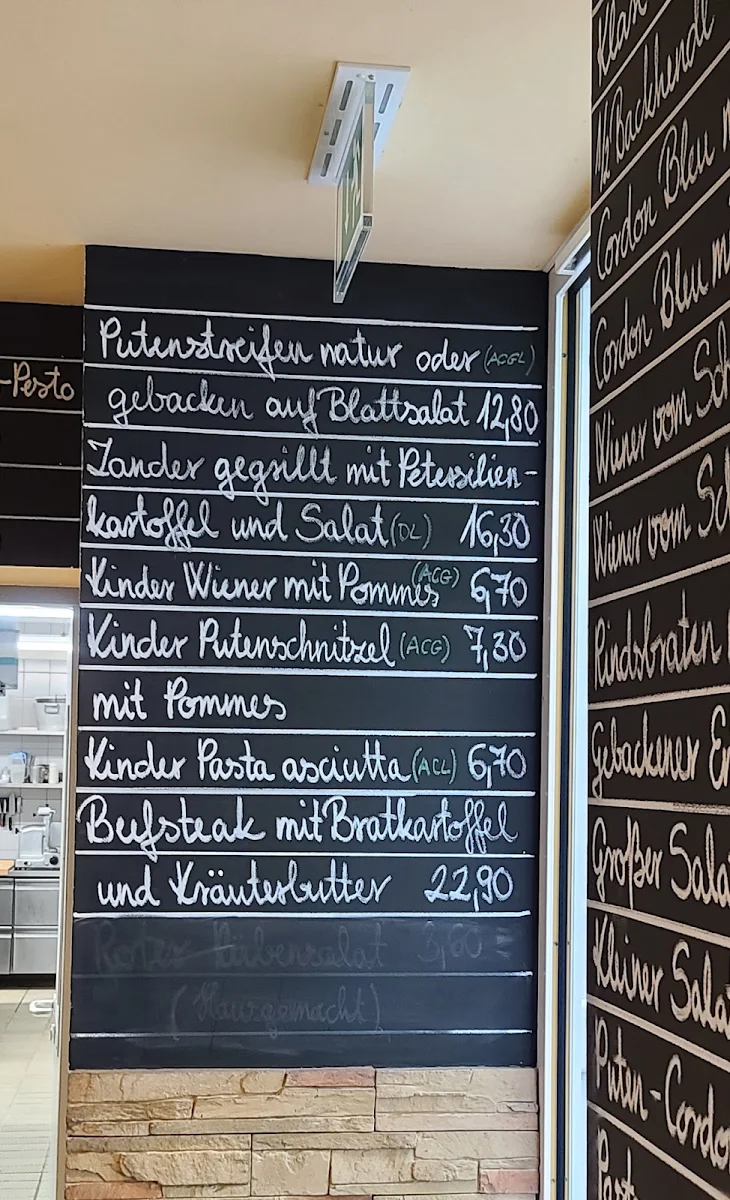 -Pesto
Putenstreifen natur oder (ACGL)
gebacken auf Blattsalat 12,80
Zander gegrillt mit Petersilien-
kartoffel und Salat (DL) 16,30
Kinder Wiener mit Pommes (ACG) 6,70
Kinder Putenschnitzel (ACG) 7,30
mit Pommes
Kinder Pasta asciutta (ACL) 6,70
Beefsteak mit Bratkartoffel
und Kräuterbutter 22,90
Roter Rübensalat 3,60
(Hausgemacht)
1/2 Backhendl
Cordon Bleu
Cordon Bleu
Wiener vom
Wiener vom
Rindsbraten
Gebackener
Großer
Kleiner
Puten-